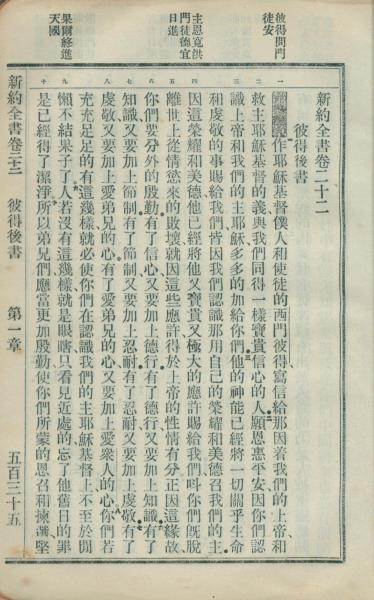 彼得問門
徒安
主恩寬洪
門徒德宜
日進
果爾終進
天國
一 二 三 四 五 六 七 八 九 十
新約全書卷二十二
彼得後書
作耶穌基督僕人和使徒的西門彼得、寫信給那因着我們的上帝、和
救主耶穌基督的義與我們同得一樣寶貴信心的人願恩惠平安因你們認
識上帝和我們的主耶穌多多的加給你們他的神能已經將一切關乎生命
和虔敬的事賜給我們皆因我們認識那用自己的榮耀和美德召我們的主
因這榮耀和美德他已經將他又寶貴又極大的應許賜給我們呌你們旣脫
離世上從情慾來的敗壞就因這些應許得於上帝的性情有分正因這緣故
你們要分外的殷勤有了信心又要加上德行有了德行又要加上知識有了
知識又要加上節制有了節制又要加上忍耐有了忍耐又要加上虔敬有了
虔敬又要加上愛弟兄的心有了愛弟兄的心又要加上愛衆人的心你們若
充充足足的有這幾樣就必使你們在認識我們的主耶穌基督上不至於閒
懶不結果子了人若沒有這幾樣就是眼瞎只看見近處的忘了他舊日的罪
是已經得了潔淨所以弟兄們應當更加殷勤使你們所蒙的恩召和揀選堅
新約全書卷二十二 彼得後書 第一章 五百三十五